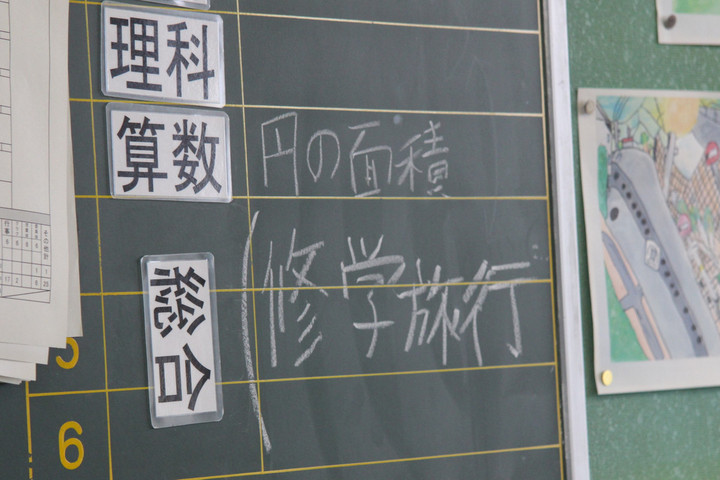 理科
算数 円の面積
総合 修学旅行
5
6